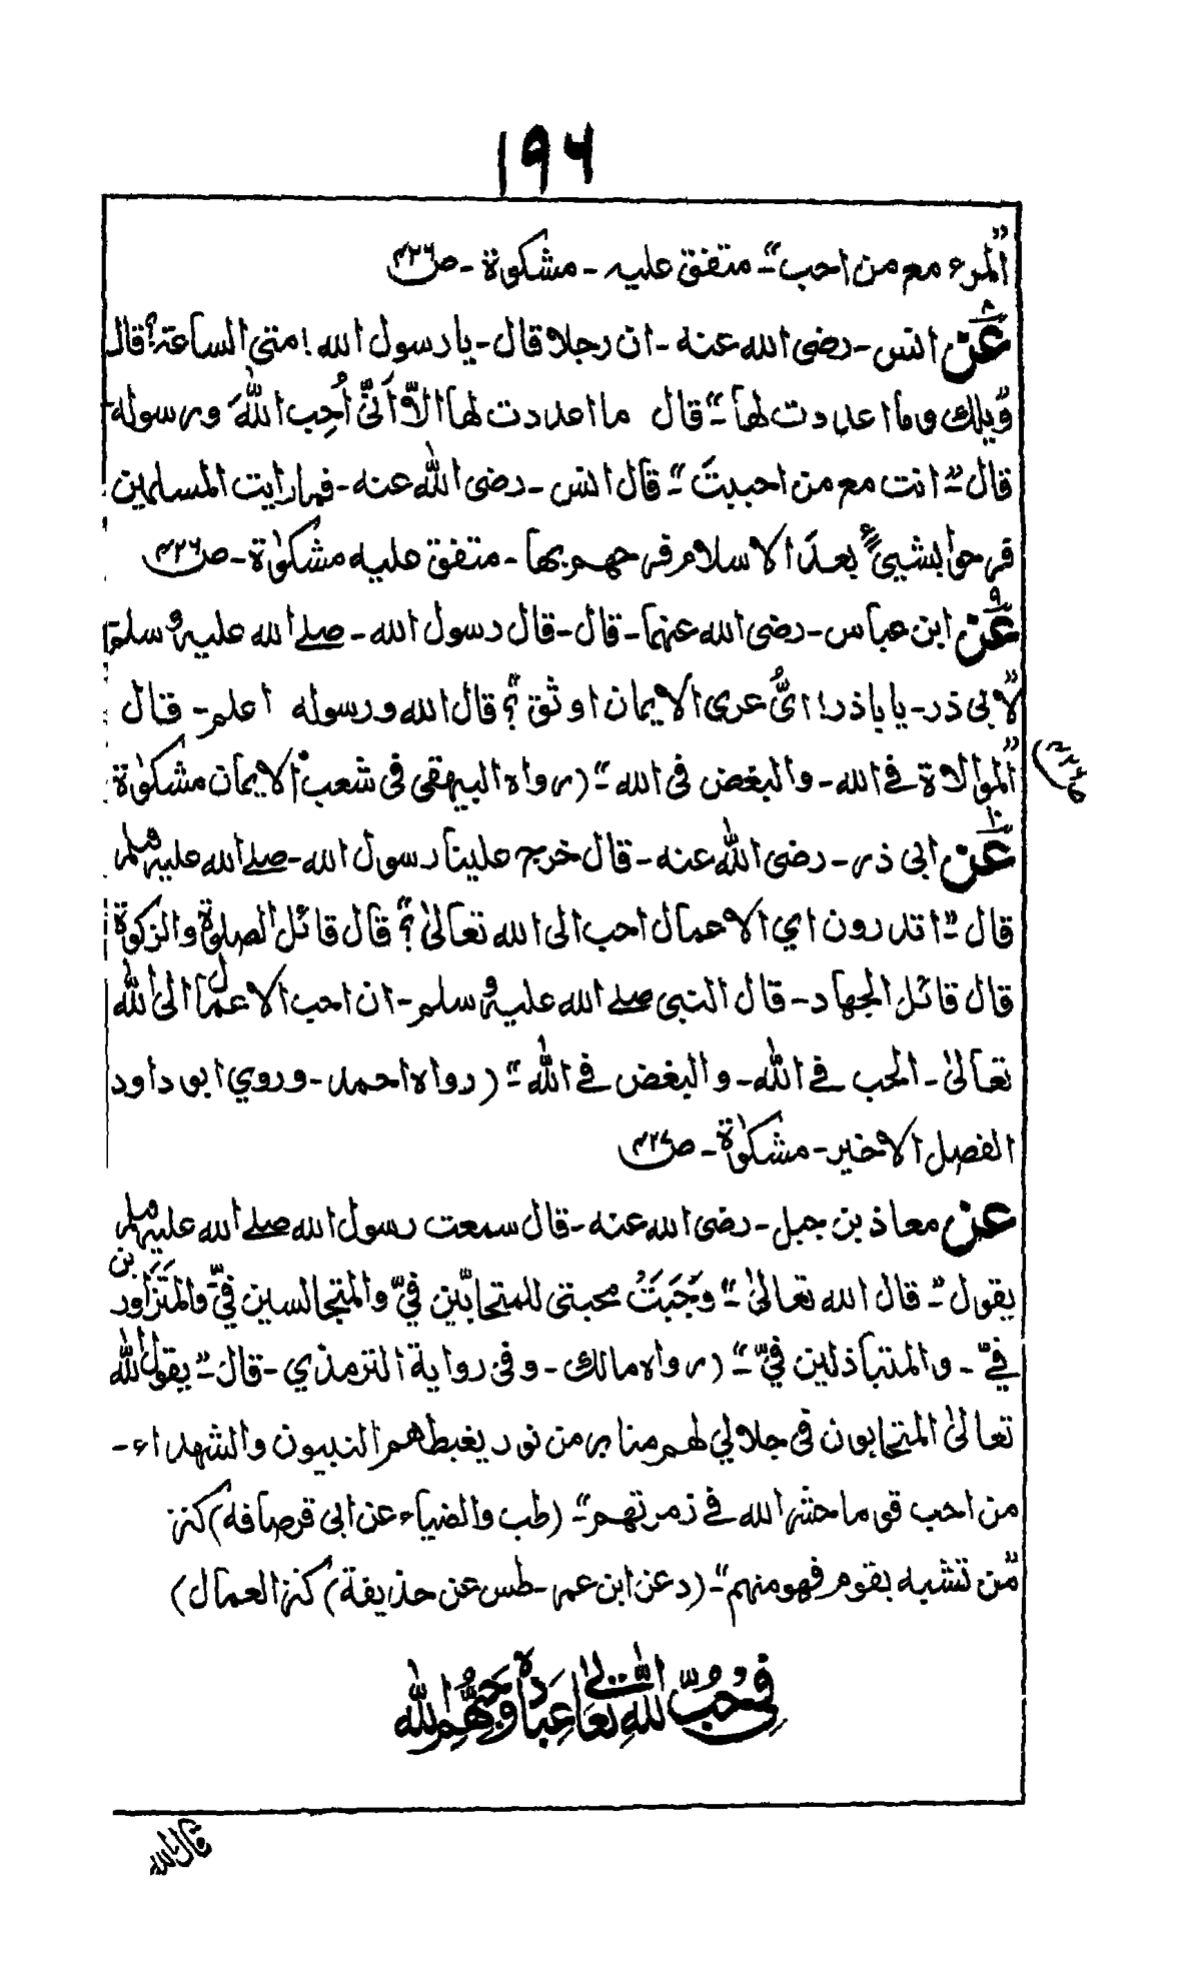 ۱۹۶
"المرء مع من احب"۔ متفق علیہ ۔ مشکوة ۔ ص۴۲۶
۸ عن انس ۔ رضی اللہ عنہ ۔ ان رجلا قال ۔ یا رسول اللہ! متی الساعة؟ قال
"ویلك وما اعددت لها"۔ قال ما اعددت لها الّا أنّی أُحِب اللهَ ورسوله
قال "انت مع من احببتَ"۔ قال انس ۔ رضی الله عنہ ۔ فما رایت المسلمین
فرحوا بشیئ بعدَ الاسلام فرحهم بها ۔ متفق علیہ مشکوٰة ۔ ص۴۲۶
۹ عن ابن عباس ۔ رضی اللہ عنہما ۔ قال ۔ قال رسول اللہ ۔ صلے اللہ علیہ وسلم
"لابی ذر ۔ یا باذر! ایُّ عری الایمان اوثق؟" قال اللہ ورسوله اعلم ۔ قال
"الموالاة فے اللہ ۔ والبغض فی اللہ"۔ (رواه البیهقی فی شعب الایمان مشکوٰة
ص۴۲۶
۱۰ عن ابی ذر ۔ رضی الله عنه ۔ قال خرج علینا رسول اللہ ۔ صلے اللہ علیہ وسلم
قال "اتدرون اي الاعمال احب الی اللہ تعالیٰ؟" قال قائل الصلوٰة والزکوٰة
قال قائل الجهاد ۔ قال النبی صلے اللہ علیہ وسلم ۔ ان احب الاعمال الی الله
تعالیٰ ۔ الحب فے الله ۔ والبغض فے الله"۔ (رواه احمد ۔ وروي ابو داود
الفصل الاخیر ۔ مشکوٰة ۔ ص۴۲۷
عن معاذ بن جبل ۔ رضی اللہ عنہ ۔ قال سمعت رسول اللہ صلے اللہ علیہ وسلم
یقول "قال اللہ تعالیٰ"۔ وَجَبَتْ محبتی للمتحابّین فیّ والمتجالسین فیّ والمتَزاورین
فیّ ۔ والمتباذلین فیّ"۔ (رواه مالك ۔ وفی روایة الترمذي ۔ قال "یقول الله
تعالیٰ المتحابون فی جلالي لهم منابر من نور یغبطهم النبیون والشهداء ۔
من احب قوما حشره اللہ فے زمرتهم"۔ (طب والضیاء عن ابی قرصافه) کنز
"من تشبه بقوم فهو منهم"۔ (د عن ابن عمر ۔ طس عن حذیفة) کنز العمال)
فِی حُبِّ اللهِ تعالیٰ عِبادَهٗ وحُبِّهِمُ الله
قال الله